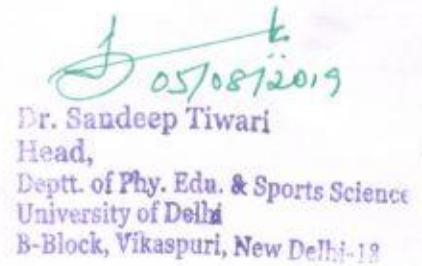 05/08/2019
Dr. Sandeep Tiwari
Head,
Deptt. of Phy. Edu. & Sports Science
University of Delhi
B-Block, Vikaspuri, New Delhi-18